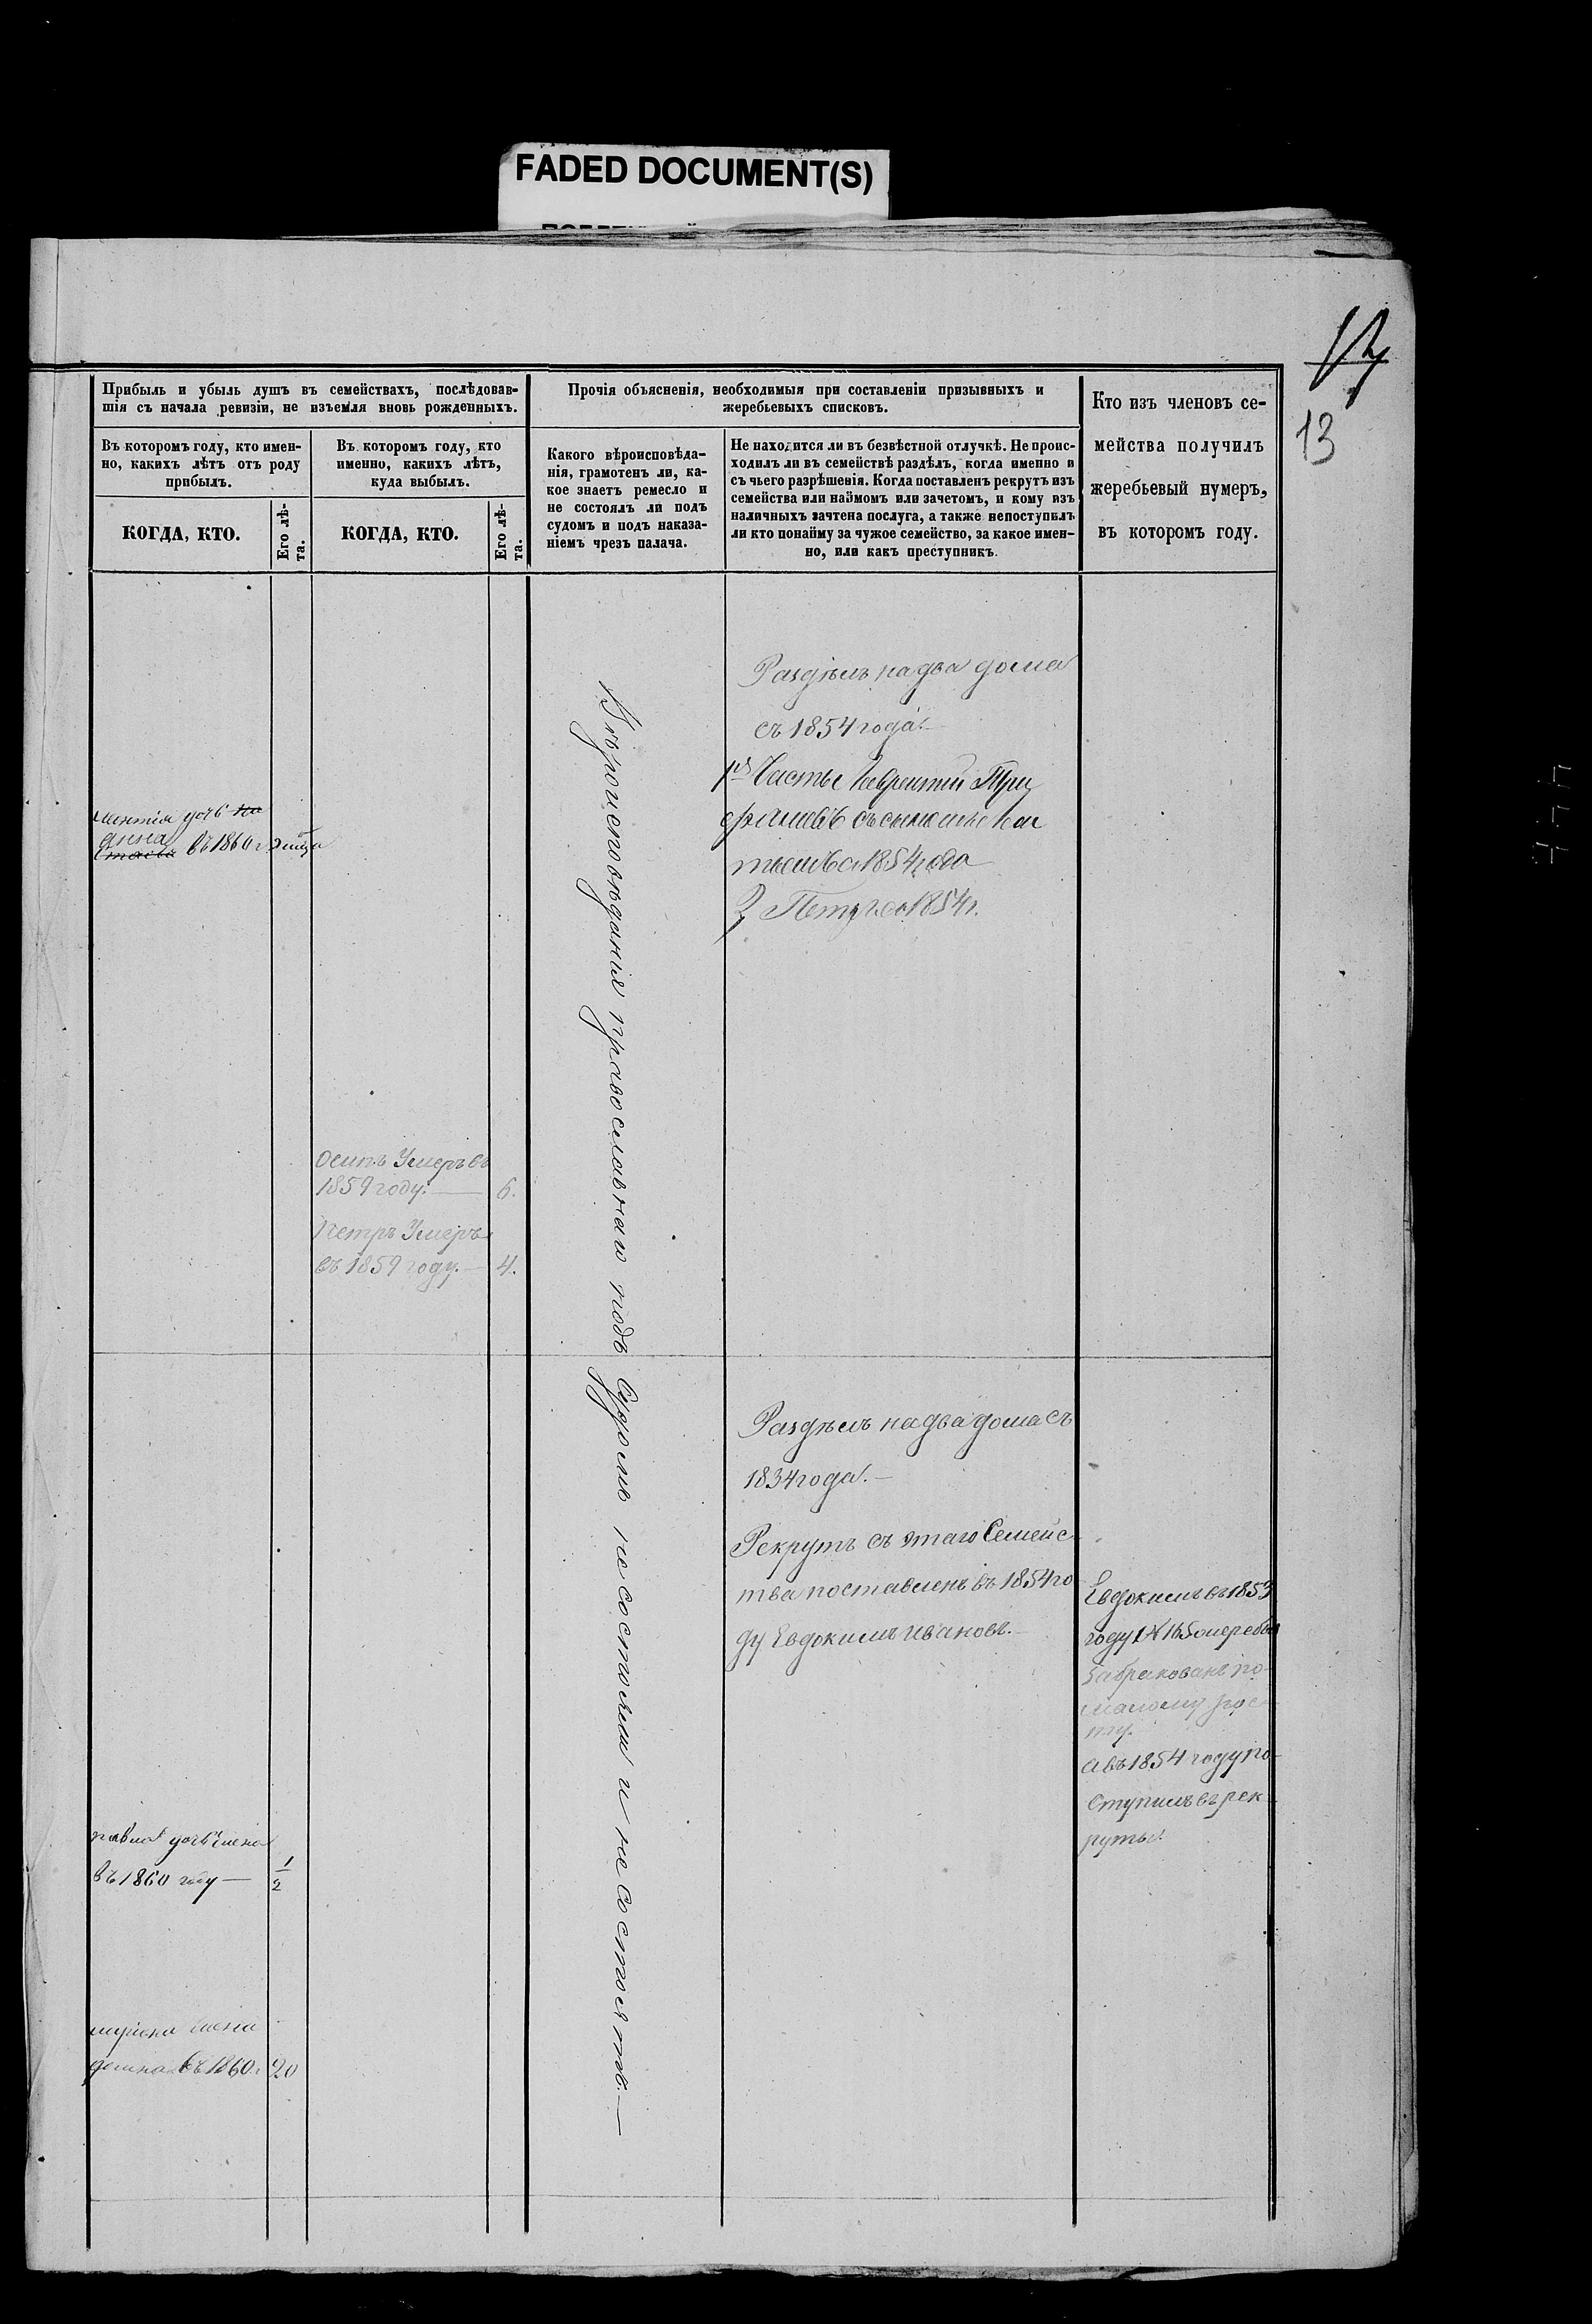 FADED DOCUMENT(S)
13
Прибыль и убыль душъ въ семействахъ, послѣдовав-
шія съ начала ревизіи, не изъемля вновь рожденныхъ.
Прочія объясненія, необходимыя при составленіи призывныхъ и
жеребьевыхъ списковъ.
Кто изъ членовъ се-
мейства получилъ
жеребьевый нумеръ,
въ которомъ году.
Въ которомъ году, кто имен-
но, какихъ лѣтъ отъ роду
прибылъ.
Въ которомъ году, кто
именно, какихъ лѣтъ,
куда выбылъ.
Какого вѣроисповѣда-
нія, грамотенъ ли, ка-
кое знаетъ ремесло и
не состоялъ ли подъ
судомъ и подъ наказа-
ніемъ чрезъ палача.
Не находится ли въ безвѣстной отлучкѣ. Не проис-
ходилъ ли въ семействѣ раздѣлъ, когда именно и
съ чьего разрѣшенія. Когда поставленъ рекрутъ изъ
семейства или наймомъ или зачетомъ, и кому изъ
наличныхъ зачтена послуга, а также непоступилъ
ли кто понайму за чужое семейство, за какое имен-
но, или какъ преступникъ.
КОГДА, КТО.
Его лѣ-
та.
КОГДА, КТО.
Его лѣ-
та.
дочь
анна
въ 1860 г
Осипъ Умеръ въ
1859 году. — 6.
Петръ Умеръ
въ 1859 году. — 4.
Вѣроисповѣданія православнаго подъ Судомъ не состояли и не состоятъ. —
Раздѣлъ на два дома
съ 1854 года. —
1я Часть Лаврентий
съ сыномъ
1854 года
2 Петръ съ 1854 г.
Раздѣлъ на два дома съ
1834 года. —
Рекрутъ съ этаго Семейс-
тва поставленъ въ 1854 го-
ду Евдокимъ Ивановъ. —
Евдокимъ въ 1853
году № 165
Забракованъ по
малому рос-
ту.
а въ 1854 году по-
ступилъ въ рек-
руты.
павла дочь
въ 1860 году — 1/2
жена
домна въ 1860 г 20